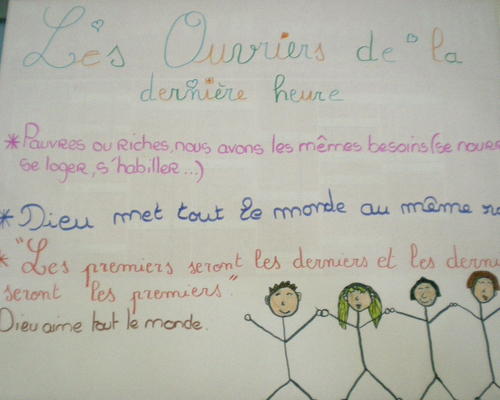 Les Ouvriers de la
dernière heure
* Pauvres ou riches, nous avons les mêmes besoins (se
se loger, s'habiller...)
* Dieu met tout le monde au même
* "Les premiers seront les derniers et les
seront les premiers."
Dieu aime tout le monde.